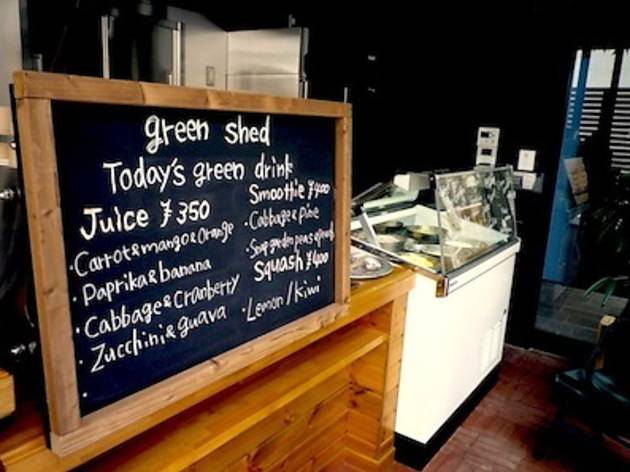 green shed
Today's green drink
Juice ¥350
·Carrot&mango&orange
·Paprika&banana
·Cabbage&Cranberry
·Zucchini&guava
Smoothie ¥400
·Cabbage& pine
·Snap garden peas&
Squash ¥400
·Lemon/kiwi